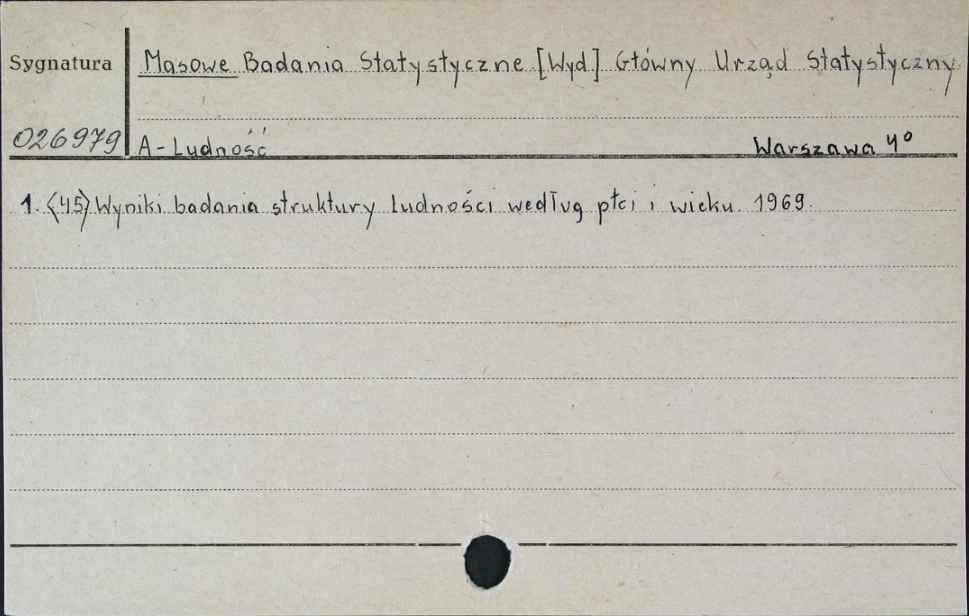 Sygnatura Masowe Badania Statystyczne [Wyd.] Główny Urząd Statystyczny
026979 A - Ludność Warszawa 4°
1. <45> Wyniki badania struktury ludności według płci i wieku. 1969.